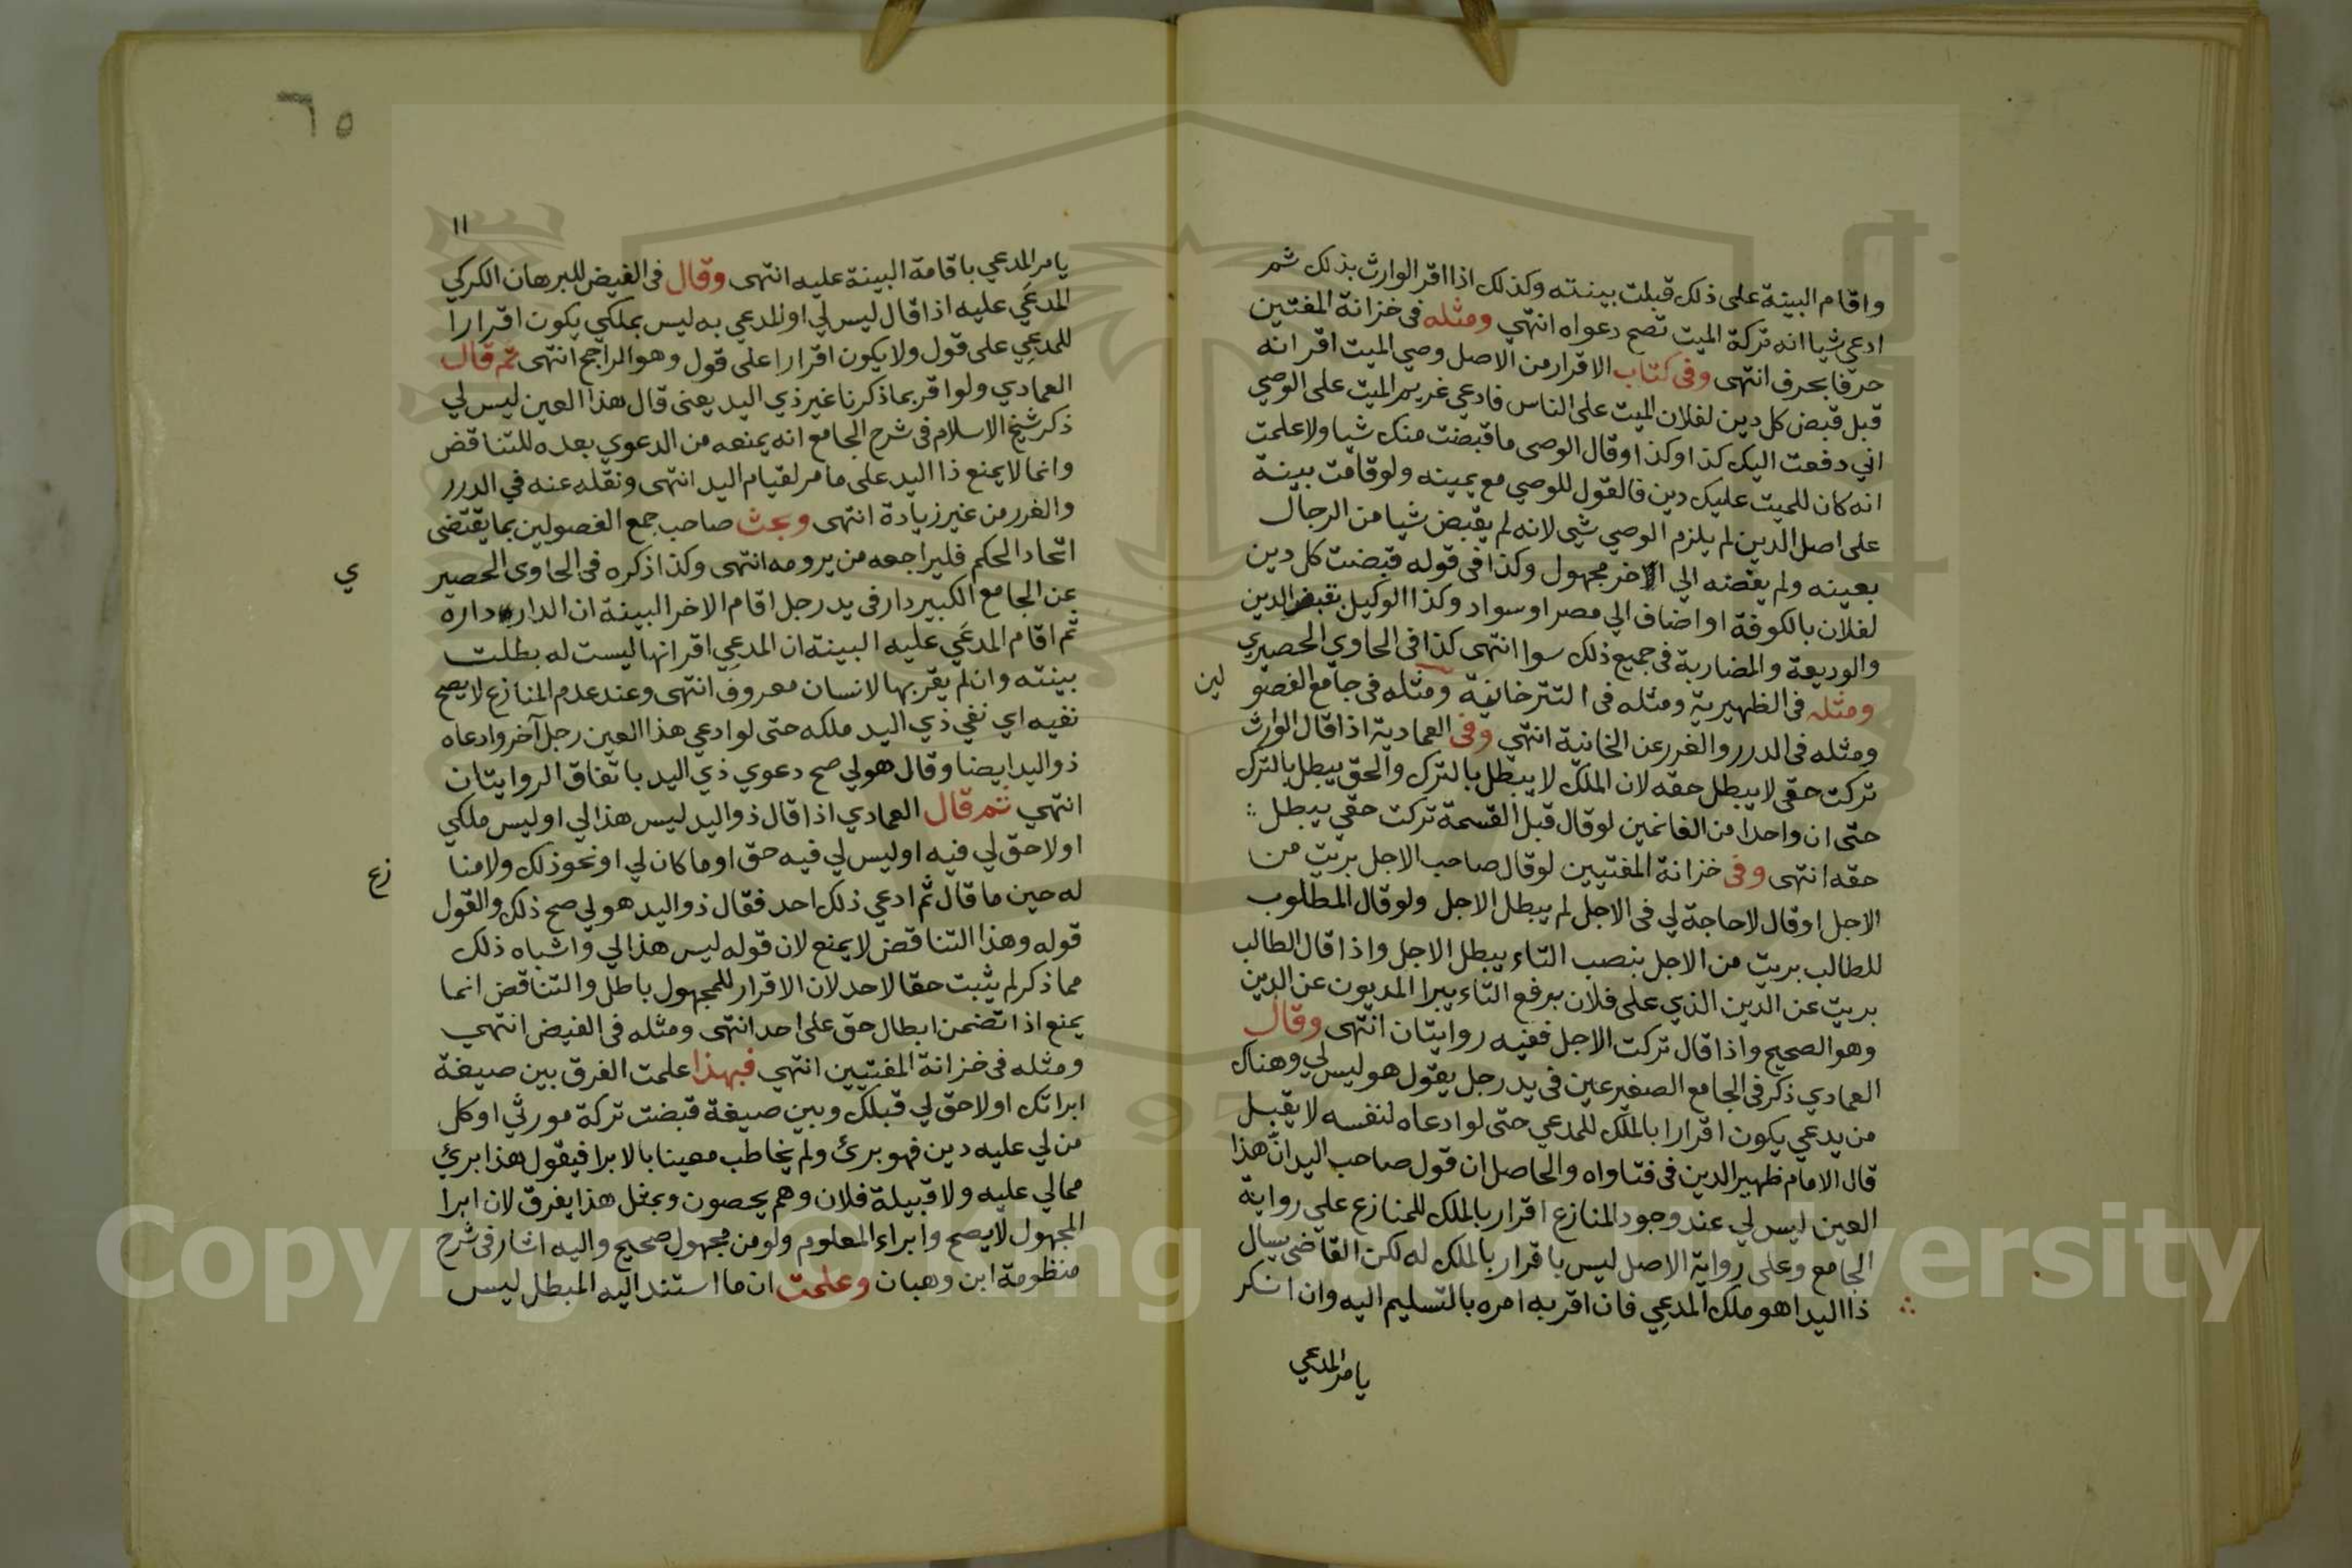 واقام البينة على ذلك قبلت بينته وكذلك اذا اقر الوارث بذلك ثم
ادعي شيا انه تركة الميت تصح دعواه انتهي ومثله فى خزانة المفتين
حرفا بحرف انتهى وفى كتاب الاقرار من الاصل وصي الميت اقر انه
قبل قبض كل دين لفلان الميت على الناس فادعي غريم الميت على الوصي
اني دفعت اليك كذا وكذا وقال الوصى ما قبضت منك شيا ولا علمت
انه كان للميت عليك دين فالقول للوصي مع يمينه ولو قامت بينة
على اصل الدين لم يلزم الوصي شي لانه لم يقبض شيا من الرجال
بعينه ولم يفضه الي الاخر مجهول وكذا فى قوله قبضت كل دين
لفلان بالكوفة او اضاف الي مصر او سواد وكذا الوكيل بقبض الدين
والوديعة والمضاربة فى جميع ذلك سوا انتهى كذا فى الحاوي الحصيري
ومثله فى الظهيرية ومثله فى التترخانية ومثله فى جامع الفصو
لين
ومثله فى الدرر والغرر عن الخانية انتهي وفى العمادية اذا قال الوارث
تركت حقي لا يبطل حقه لان الملك لا يبطل بالترك والحق يبطل بالترك
حتى ان واحدا من الغانمين لو قال قبل القسمة تركت حقي يبطل
حقه انتهى وفى خزانة المفتيين لو قال صاحب الاجل بريت من
الاجل او قال لا حاجة لي فى الاجل لم يبطل الاجل ولو قال المطلوب
للطالب بريت من الاجل بنصب التاء يبطل الاجل واذا قال الطالب
بريت عن الدين الذي على فلان برفع التاء يبرا المديون عن الدين
وهو الصحيح واذا قال تركت الاجل ففيه روايتان انتهى وقال
العمادي ذكر فى الجامع الصغير عين فى يد رجل يقول هو ليس لي وهناك
من يدعي يكون اقرارا بالملك للمدعي حتى لو ادعاه لنفسه لا يقبل
قال الامام ظهير الدين فى فتاواه والحاصل ان قول صاحب اليد ان هذا
العين ليس لي عند وجود المنازع اقرار بالملك للمنازع علي رواية
الجامع وعلى رواية الاصل ليس باقرار بالملك له لكن القاضى يسال
ذا اليد اهو ملك المدعِي فان اقر به امره بالتسليم اليه وان انكر
يامر المدعي
٦٥
١١
يامر المدعي باقامة البينة عليه انتهى وقال فى الفيض للبرهان الكركي
المدعَي عليه اذا قال ليس لي او المدعي به ليس بملكي يكون اقرارا
للمدعِي على قول ولا يكون اقرارا على قول وهو الراجح انتهى ثم قال
العمادي ولو اقر بما ذكرنا غير ذي اليد يعنى قال هذا العين ليس لي
ذكر شيخ الاسلام فى شرح الجامع انه يمنعه من الدعوي بعده للتناقض
وانما لا يمنع ذا اليد على ما مر لقيام اليد انتهى ونقله عنه في الدرر
والغرر من غير زيادة انتهى وبحث صاحب جمع الفصولين بما يقتضى
اتحاد الحكم فليراجعه من يرومه انتهى وكذا ذكره فى الحاوى الحصير
ي
عن الجامع الكبير دار فى يد رجل اقام الاخر البينة ان الدار داره
ثم اقام المدعَي عليه البينة ان المدعِي اقر انها ليست له بطلت
بينته وان لم يقر بها لانسان معروف انتهى وعند عدم المنازع لا يصح
نفيه اي نفي ذي اليد ملكه حتى لو ادعي هذا العين رجل آخر وادعاه
ذو اليد ايضا وقال هو لي صح دعوي ذي اليد باتفاق الروايتان
انتهي ثم قال العمادي اذا قال ذو اليد ليس هذا لي او ليس ملكي
او لا حق لي فيه او ليس لي فيه حق او ما كان لي او نحو ذلك ولا منا
زع
له حين ما قال ثم ادعي ذلك احد فقال ذو اليد هو لي صح ذلك والقول
قوله وهذا التناقض لا يمنع لان قوله ليس هذا لي واشباه ذلك
مما ذكر لم يثبت حقا لاحد لان الاقرار للمجهول باطل والتناقض انما
يمنع اذا تضمن ابطال حق على احد انتهى ومثله فى الفيض انتهي
ومثله فى خزانة المفتيين انتهي فبهذا علمت الفرق بين صيغة
ابراتك او لا حق لي قبلك وبين صيغة قبضت تركة مورثي او كل
من لي عليه دين فهو برئ ولم يخاطب معينا بالابرا فيقول هذا برئ
مما لي عليه ولا قبيلة فلان وهم يحصون وبمثل هذا يفرق لان ابرا
المجهول لا يصح وابراء المعلوم ولو من مجهول صحيح واليه اشار فى شرح
منظومة ابن وهبان وعلمت ان ما استند اليه المبطل ليس
Copyright © King Saud University